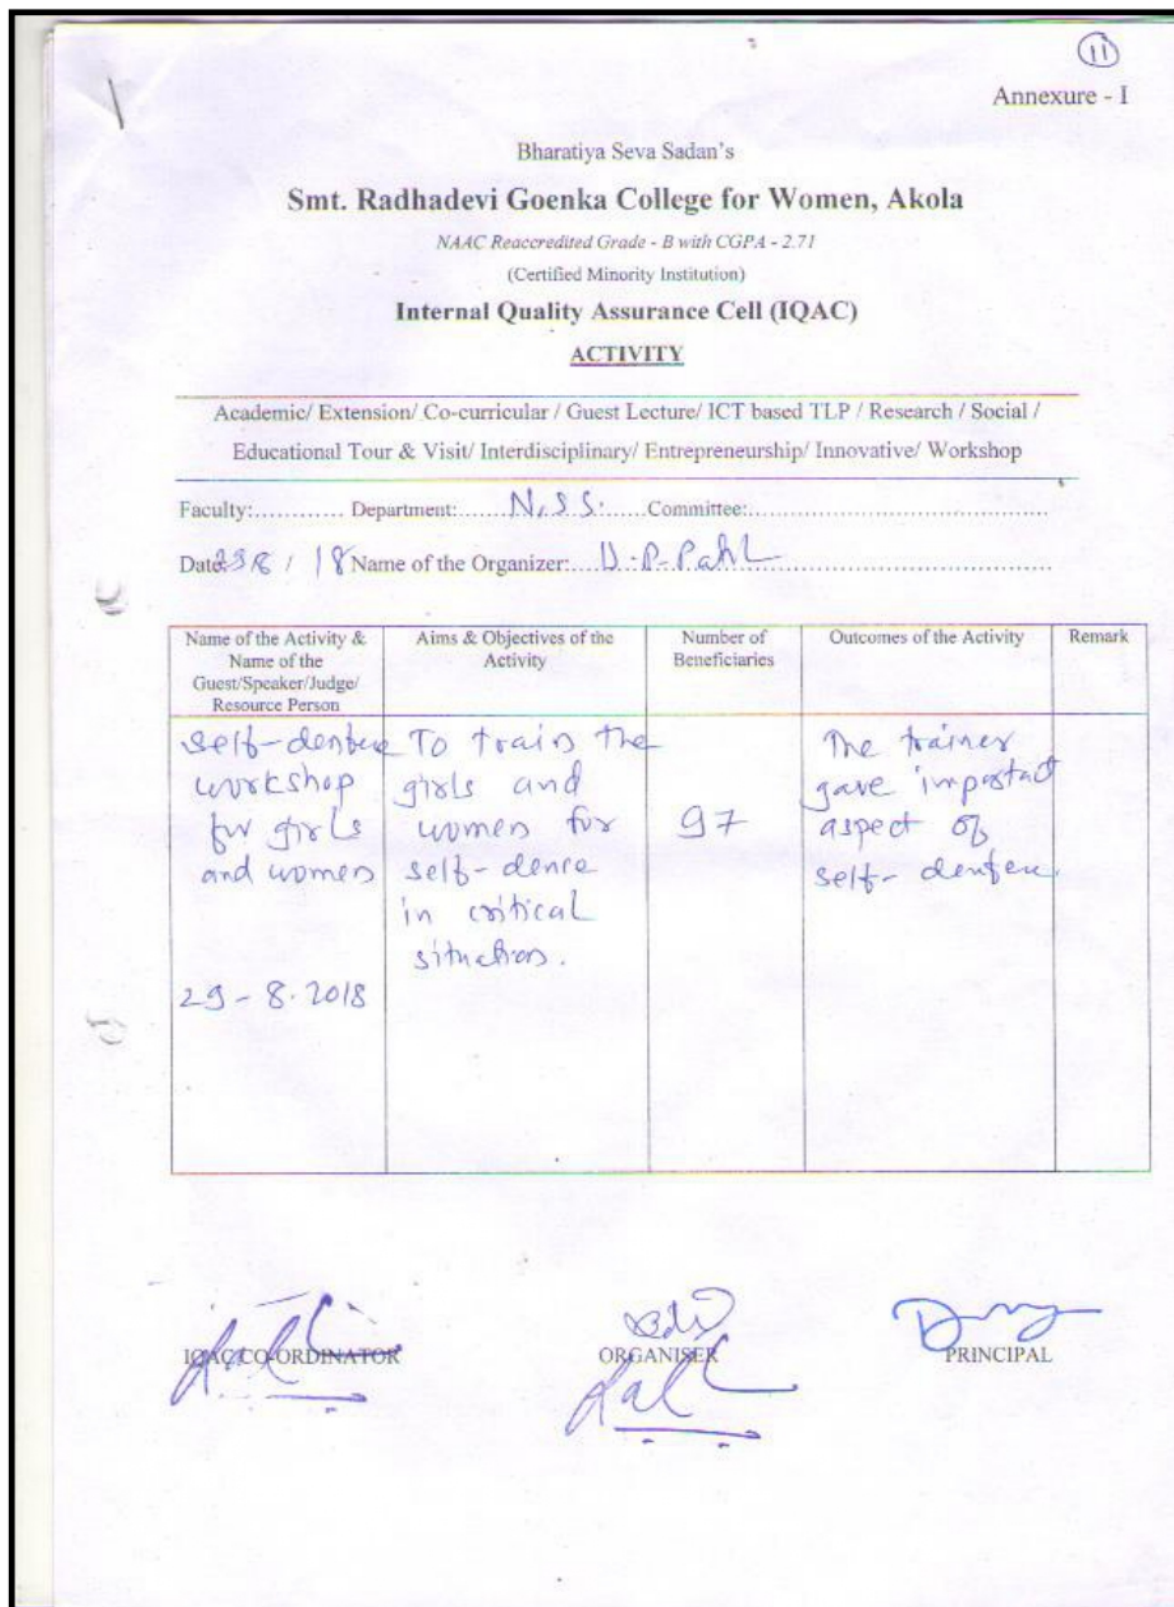 11
Annexure - I
Bharatiya Seva Sadan's
Smt. Radhadevi Goenka College for Women, Akola
NAAC Reaccredited Grade - B with CGPA - 2.71
(Certified Minority Institution)
Internal Quality Assurance Cell (IQAC)
ACTIVITY
Academic/ Extension/ Co-curricular / Guest Lecture/ ICT based TLP / Research / Social /
Educational Tour & Visit/ Interdisciplinary/ Entrepreneurship/ Innovative/ Workshop
Faculty:............ Department:..... N.S.S. .....Committee:..........................................
Date: / 18 Name of the Organizer:....
Name of the Activity &
Name of the
Guest/Speaker/Judge/
Resource Person
Aims & Objectives of the
Activity
Number of
Beneficiaries
Outcomes of the Activity
Remark
self-
workshop
for girls
and women
29-8.2018
To train the
girls and
women for
self-dence
in critical
situation.
97
The trainer
gave
aspect of
self-
IQAC CO-ORDINATOR
ORGANISER
PRINCIPAL